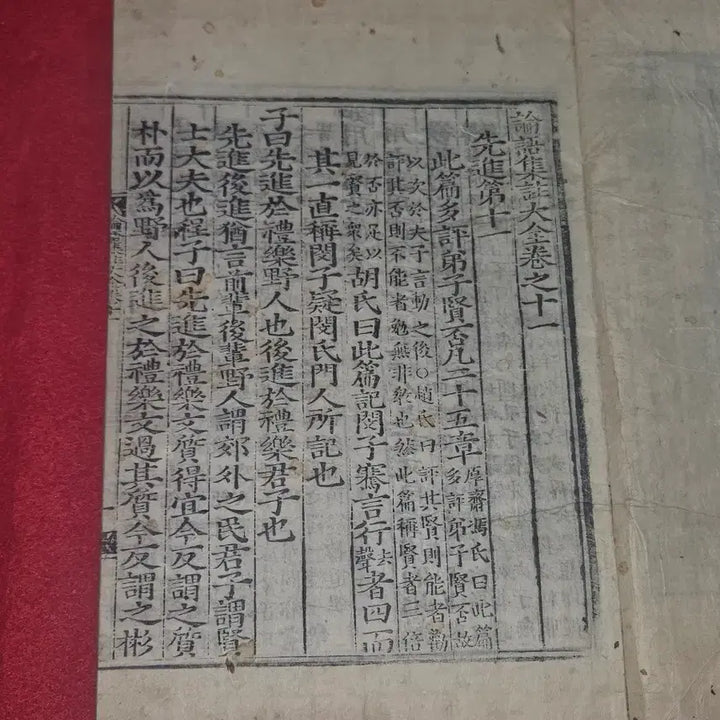 論語集註大全卷之十一
先進第十一
此篇多評弟子賢否凡二十五章
厚齋馮氏曰此篇
多評弟子賢否故
以次於夫子言動之後○趙氏曰評其賢則能者勸
評其否則不能者勉無非敎也然此篇稱賢者三倍
於否亦足以
見賢之衆矣
胡氏曰此篇記閔子騫言行去聲者四而
其一直稱閔子疑閔氏門人所記也
子曰先進於禮樂野人也後進於禮樂君子也
先進後進猶言前輩後輩野人謂郊外之民君子謂賢
士大夫也程子曰先進於禮樂文質得宜今反謂之質
朴而以爲野人後進之於禮樂文過其質今反謂之彬